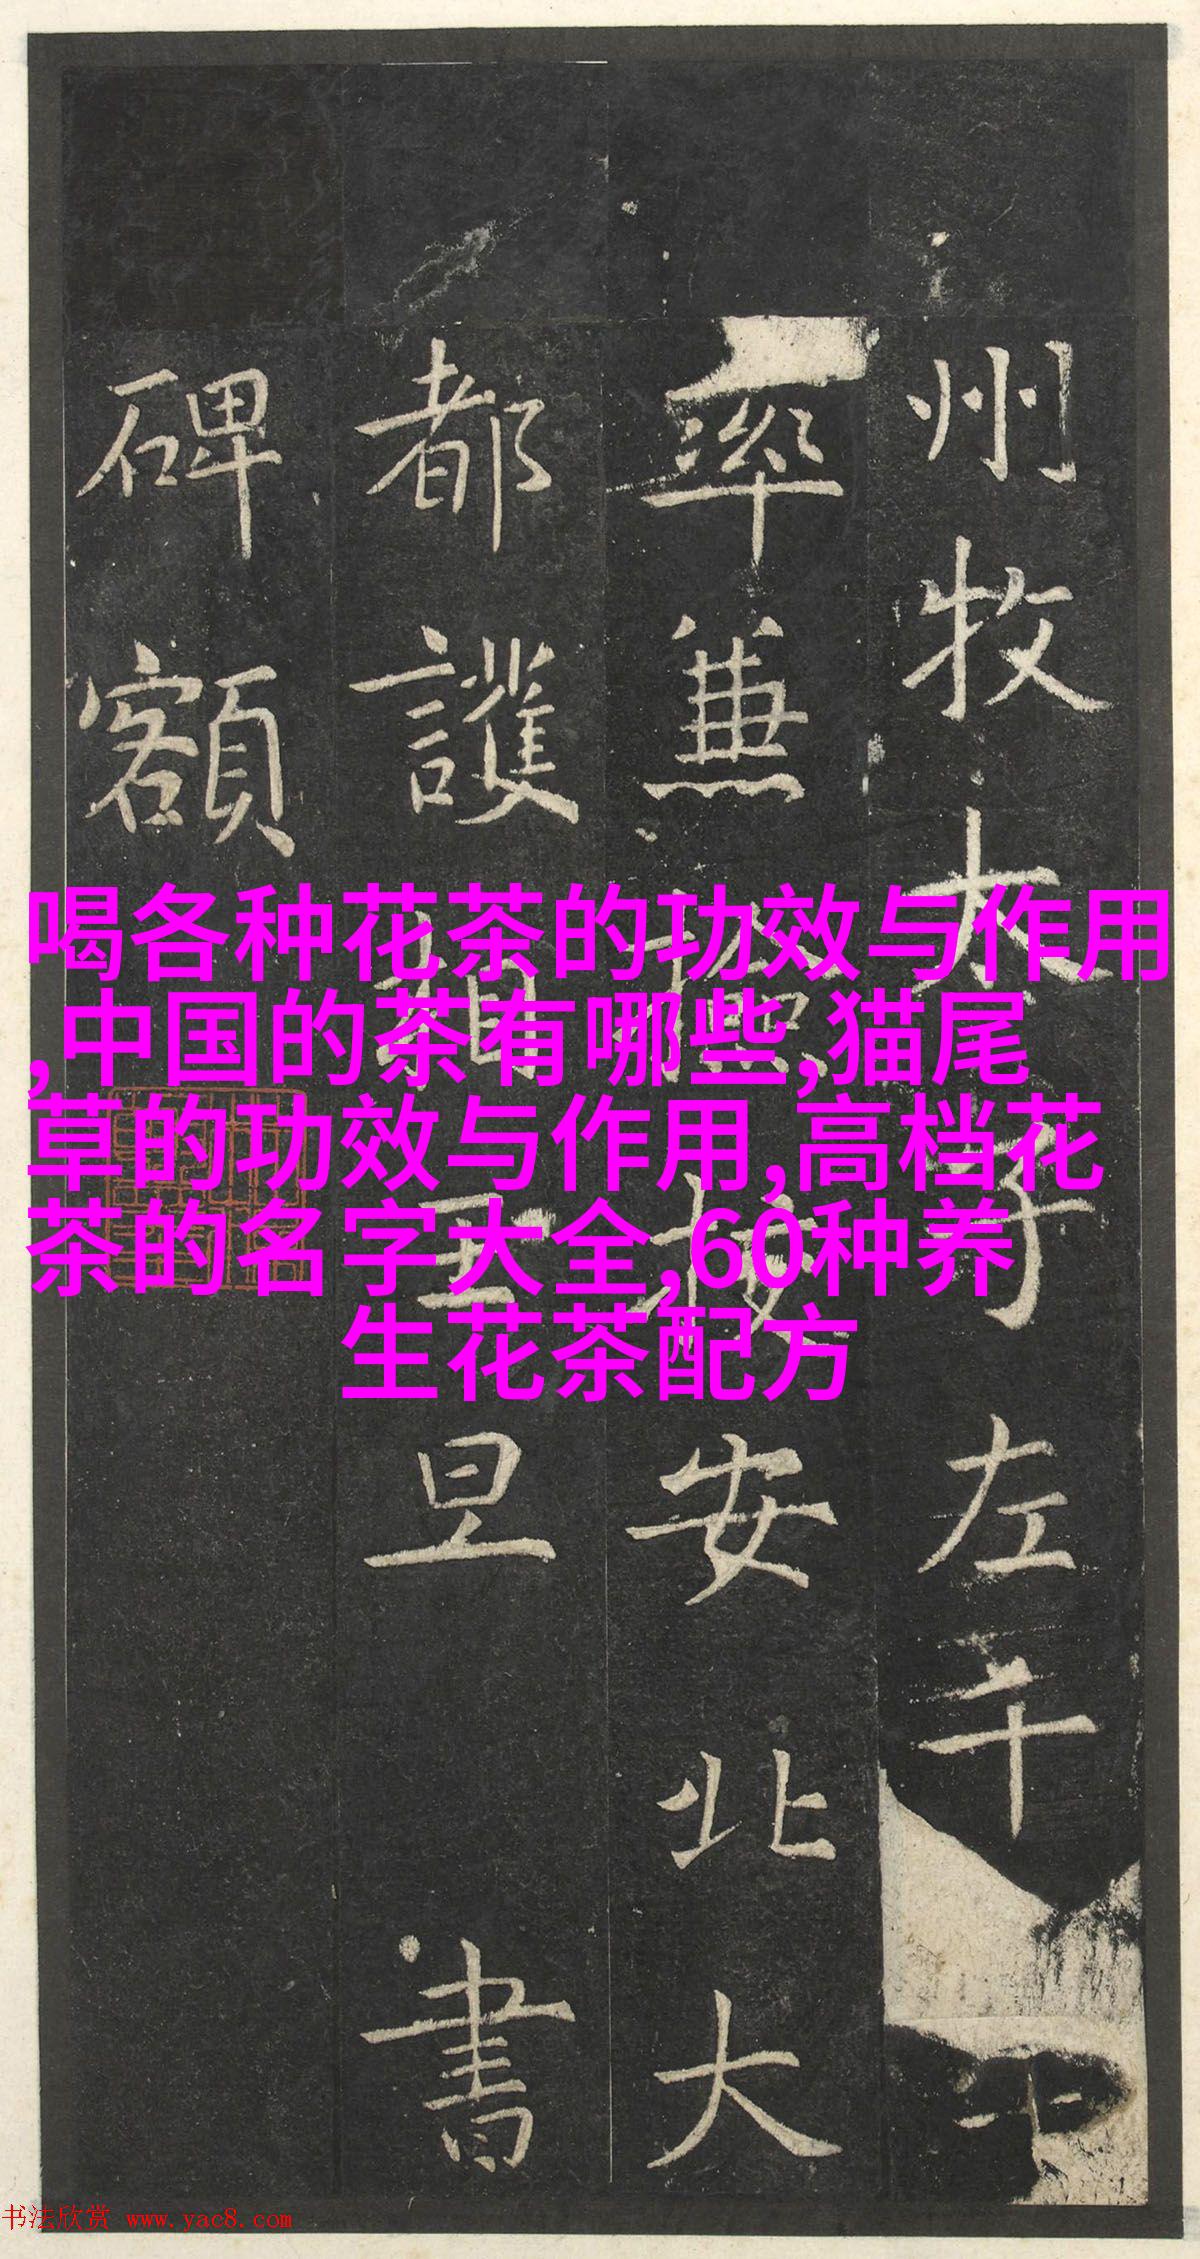 州牧太子左千
率兼檢校安北大
都護相王旦書
碑額
喝各种花茶的功效与作用
,中国的茶有哪些,猫尾
草的功效与作用,高档花
茶的名字大全,60种养
生花茶配方
书法欣赏 www.yac8.com